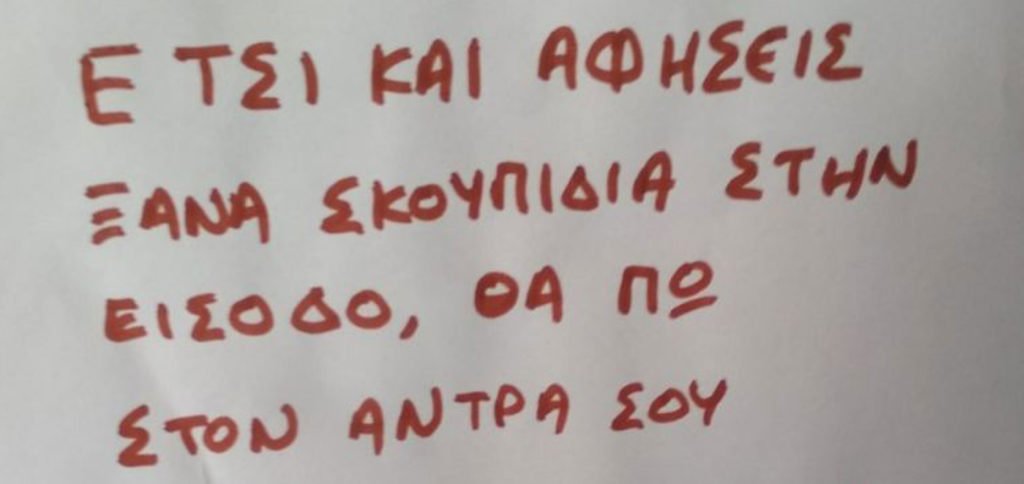 ΕΤΣΙ ΚΑΙ ΑΦΗΣΕΙΣ
ΞΑΝΑ ΣΚΟΥΠΙΔΙΑ ΣΤΗΝ
ΕΙΣΟΔΟ, ΘΑ ΠΩ
ΣΤΟΝ ΑΝΤΡΑ ΣΟΥ